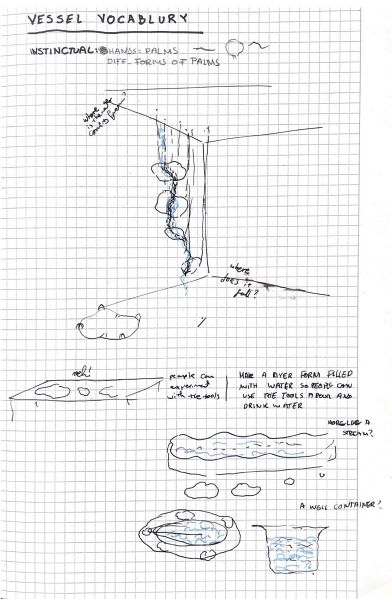 VESSEL VOCABLURY
INSTINCTUAL: HANDS = PALMS
DIFF. FORMS OF PALMS
where
is the
come from?
where
does it
fall?
meh!
people can
experiment
with the tools
MAKE A RIVER FORM FILLED
WITH WATER SO PEOPLE CAN
USE THE TOOLS AROUND AND
DRINK WATER
MORE LIKE A
STREAM?
A WELL CONTAINER?